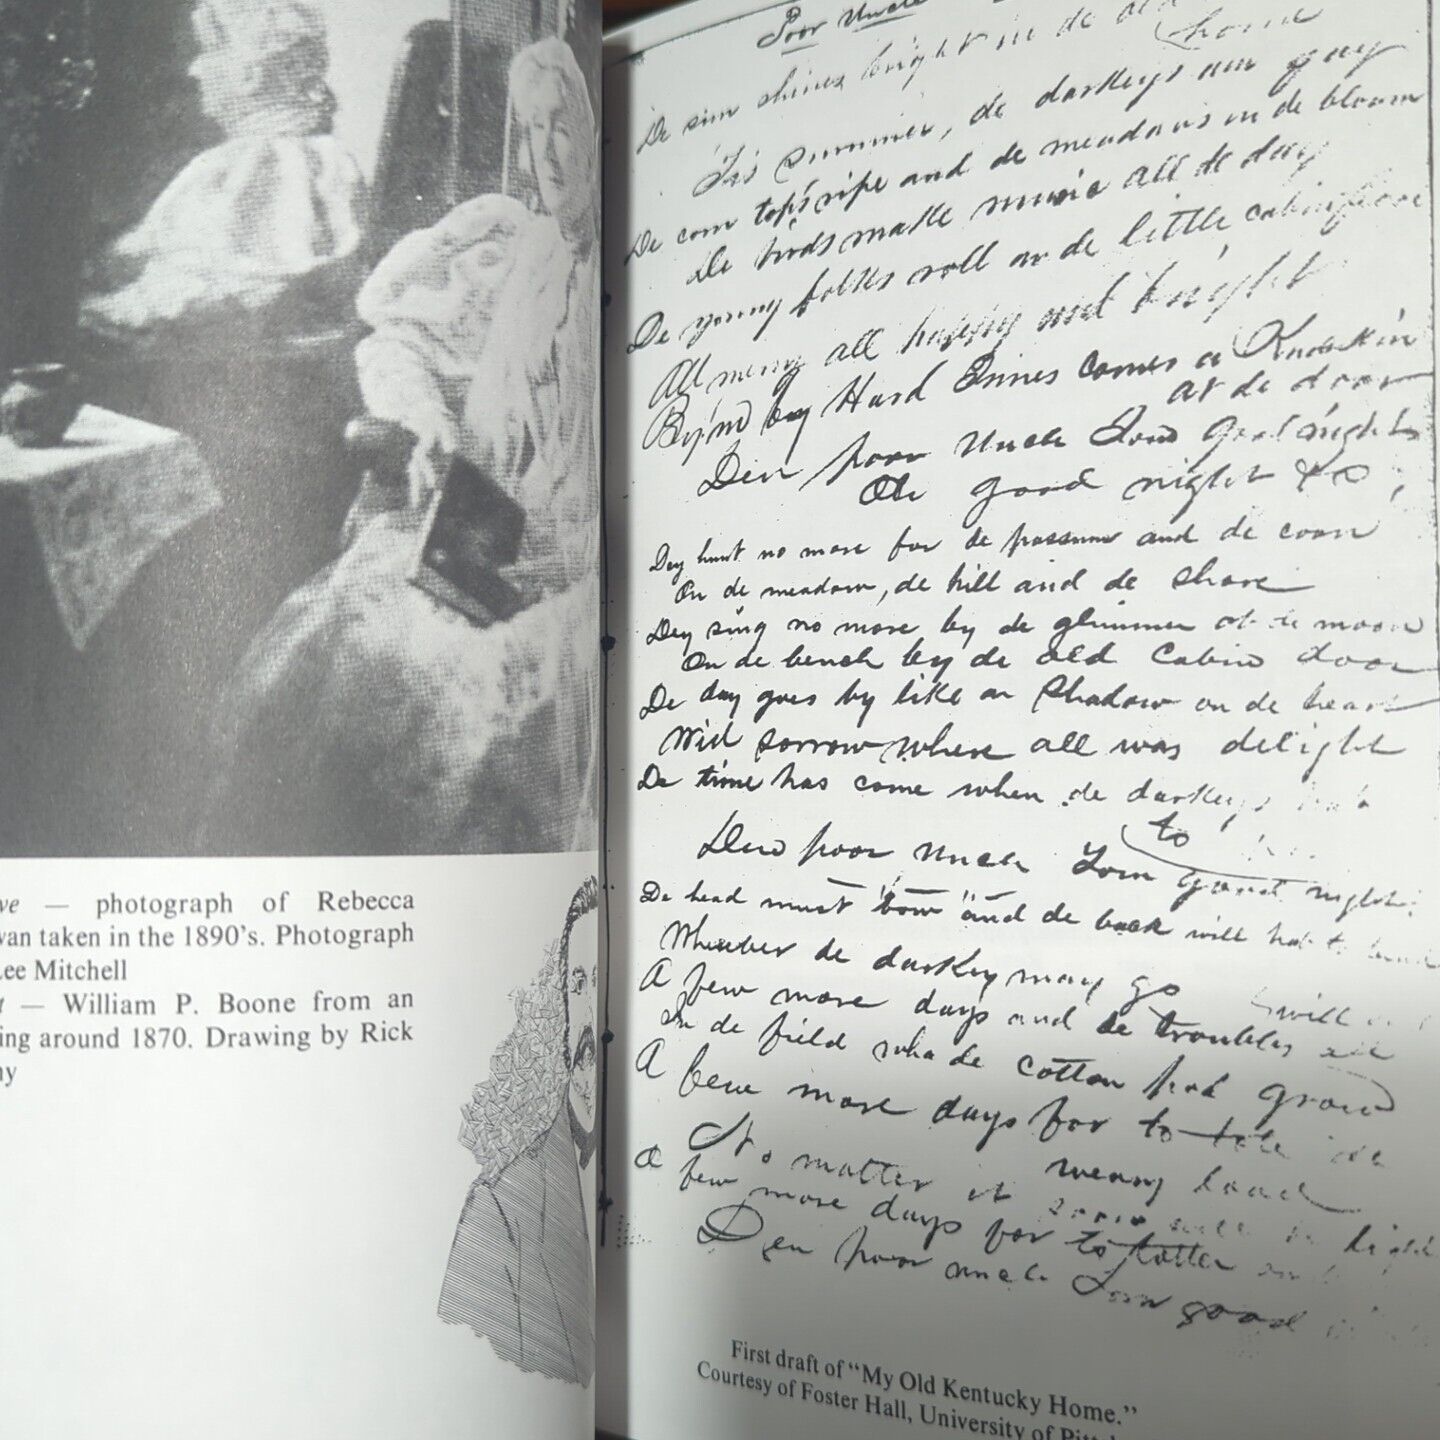 ve — photograph of Rebecca
van taken in the 1890's. Photograph
Lee Mitchell
t — William P. Boone from an
ing around 1870. Drawing by Rick
ny
Poor Uncle
De sun shines bright in de old
home
Tis summer, de darkeys am gay
De corn top's ripe and de meadows in de bloom
De birds make music all de day
De young folks roll on de little cabin floor
All merry all happy and bright
By'm by Hard Times comes a Knockin
at de door
Den poor Uncle Tom good night
Oh good night
Dey hunt no more for de possum and de coon
On de meadow, de hill and de shore
Dey sing no more by de glimmer ob de moon
On de bench by de old cabin door
De day goes by like a shadow on de heart
Wid sorrow where all was delight
De time has come when de darkeys
to
Den poor Uncle Tom good night
De head must bow and de back will hab to bend
Wherever de darkey may go
A few more days and de troubles all will
In de field wha de cotton grow
A few more days for to tote de
weary load
No matter it will be light
A few more days for to totter on
Den poor uncle Tom good
First draft of "My Old Kentucky Home."
Courtesy of Foster Hall, University of